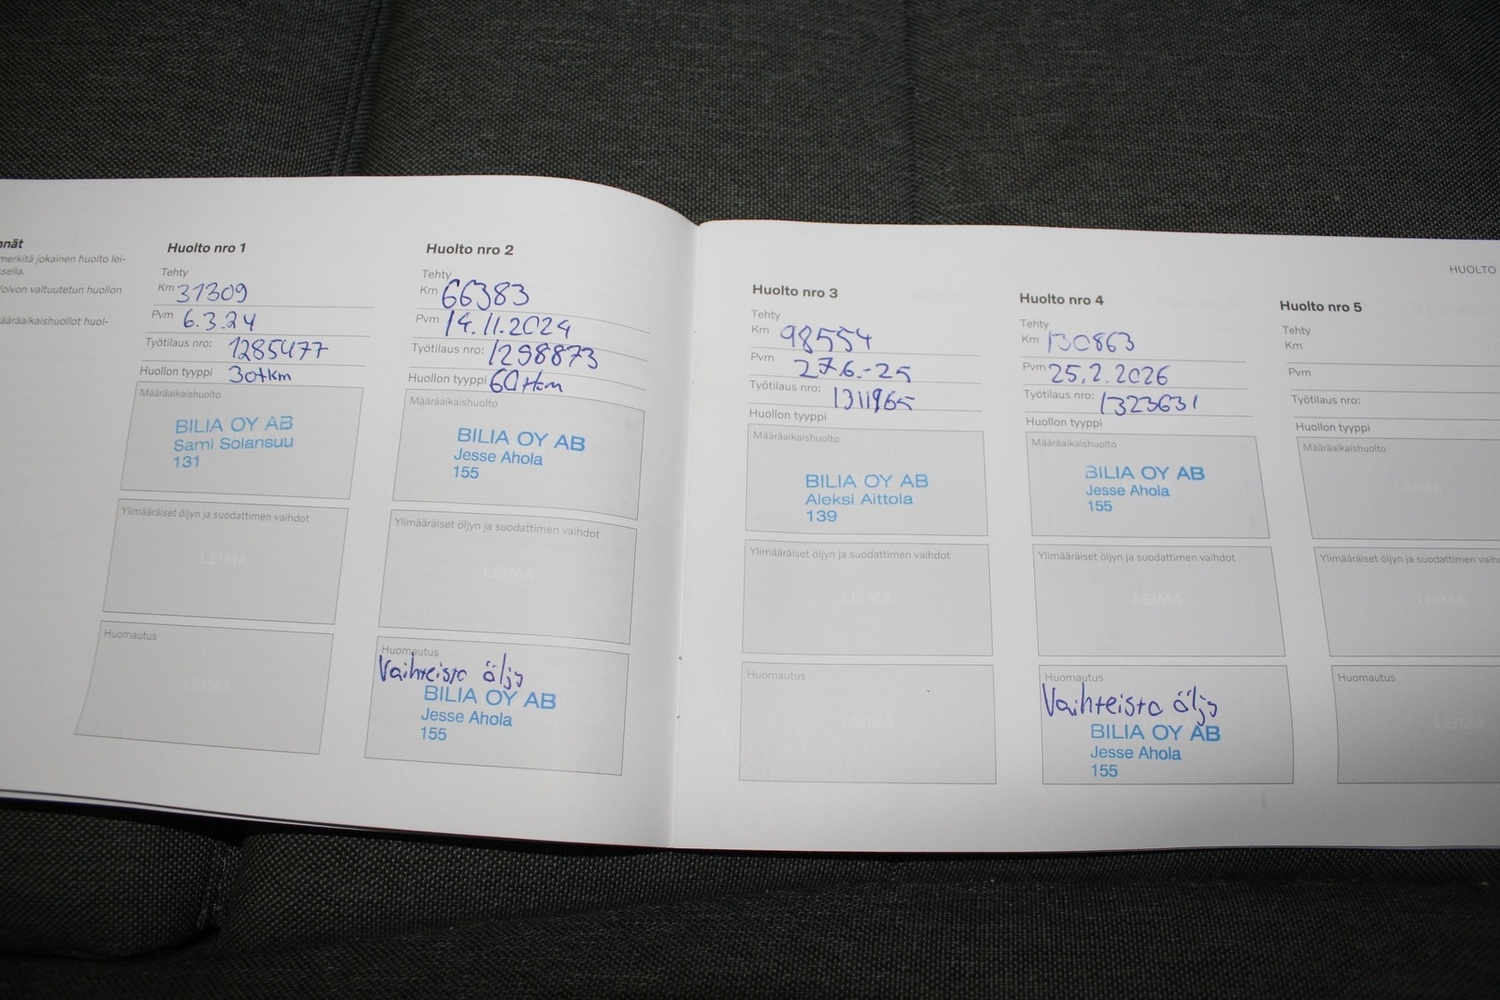 nnät
merkitä jokainen huolto lei-
ksella.
olvon valtuutetun huollon
ääräaikaishuollot huol-
Huolto nro 1
Tehty
Km 31309
Pvm 6.3.24
Työtilaus nro: 1285477
Huollon tyyppi 30tkm
Määräaikaishuolto
BILIA OY AB
Sami Solansuu
131
Ylimääräiset öljyn ja suodattimen vaihdot
LEIMA
Huomautus
LEIMA
Huolto nro 2
Tehty
Km 66383
Pvm 14.11.2024
Työtilaus nro: 1298873
Huollon tyyppi 60tkm
Määräaikaishuolto
BILIA OY AB
Jesse Ahola
155
Ylimääräiset öljyn ja suodattimen vaihdot
LEIMA
Huomautus
Vaihteisto öljy
BILIA OY AB
Jesse Ahola
155
Huolto nro 3
Tehty
Km 98554
Pvm 27.6.-25
Työtilaus nro: 1311965
Huollon tyyppi
Määräaikaishuolto
BILIA OY AB
Aleksi Aittola
139
Ylimääräiset öljyn ja suodattimen vaihdot
LEIMA
Huomautus
LEIMA
Huolto nro 4
Tehty
Km 130863
Pvm 25.2.2026
Työtilaus nro: 1323631
Huollon tyyppi
Määräaikaishuolto
BILIA OY AB
Jesse Ahola
155
Ylimääräiset öljyn ja suodattimen vaihdot
LEIMA
Huomautus
Vaihteisto öljy
BILIA OY AB
Jesse Ahola
155
HUOLTO
Huolto nro 5
Tehty
Km
Pvm
Työtilaus nro:
Huollon tyyppi
Määräaikaishuolto
LEIMA
Ylimääräiset öljyn ja suodattimen vaih
LEIMA
Huomautus
LEIMA